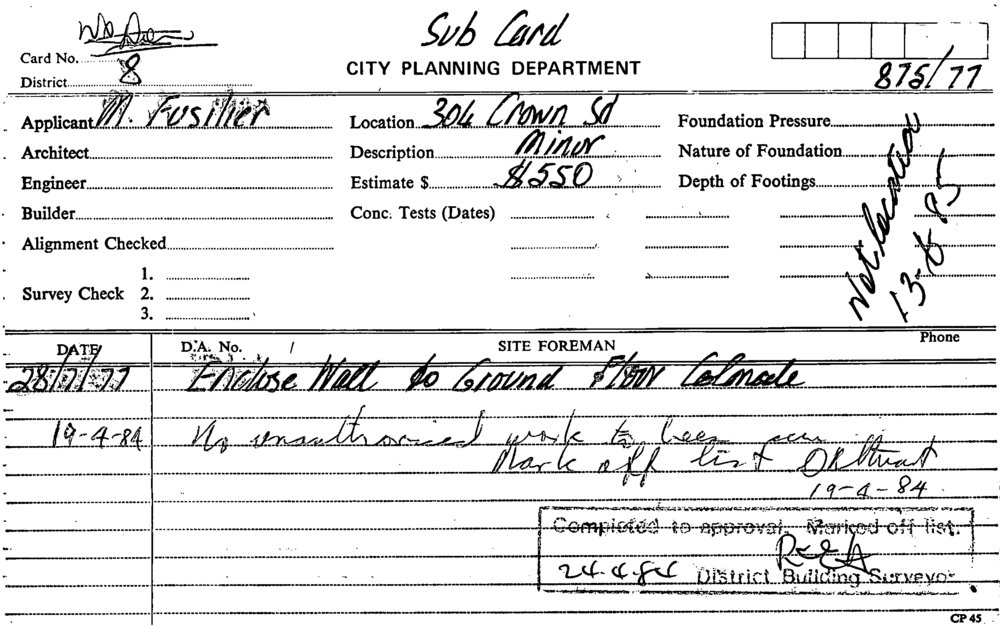 Sub Card
Card No.
CITY PLANNING DEPARTMENT
District 8
875/77
Applicant M. Fusilier
Location 304 Crown Sd
Foundation Pressure
Architect
Description Minor
Nature of Foundation
Engineer
Estimate $ $550
Depth of Footings
Builder
Conc. Tests (Dates)
Not location
13-8-85
Alignment Checked
1.
Survey Check 2.
3.
DATE D.A. No. / SITE FOREMAN Phone
28/7/77 Enclose Wall to Ground Floor Colnade
19-4-84 No unauthorised work to been
Mark off list
19-4-84
Completed to approval. Marked off list.
24-4-84 District Building Surveyor
CP 45